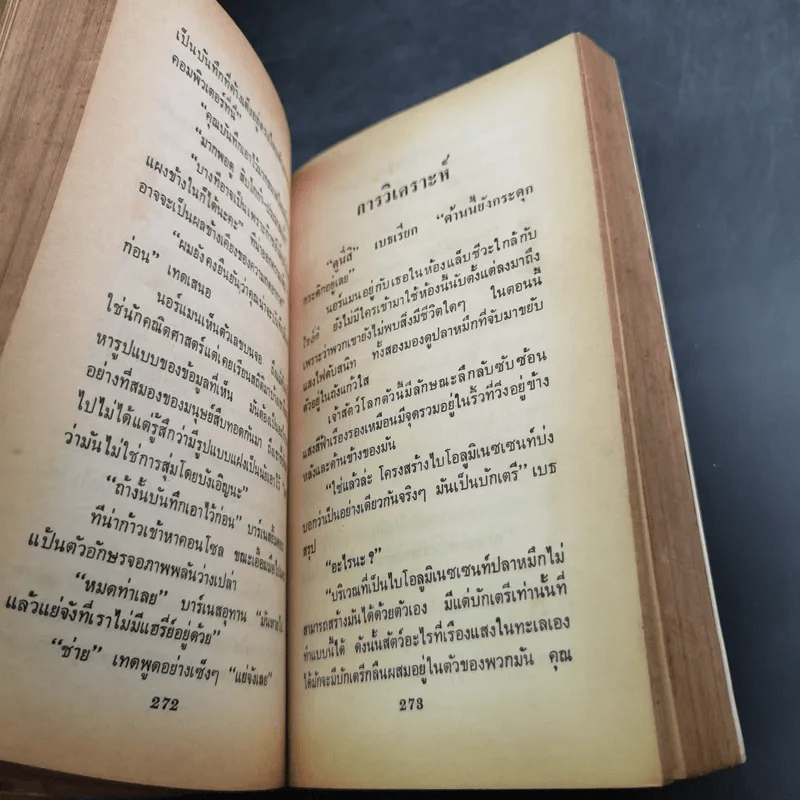 เป็นบันทึกที่ครั้งเดียว
คอมพิวเตอร์ที่นี่"
"คุณบันทึกเอาไว้
"มากพอดู สิบ
"บางทีอาจเป็นเพราะ
แผงข้างในก็ได้นะคะ"
อาจจะเป็นผลข้างเคียงของความ
"ผมยังคงยืนยันว่าคุณน่าจะ
ก่อน" เทดเสนอ
นอร์แมนเห็นตัวเลขบนจอ
ใช่นักคณิตศาสตร์แต่เคยเรียนสถิติมา
หารูปแบบของข้อมูลที่เห็น มันต้องเป็น
อย่างที่สมองของมนุษย์สืบทอดกันมา ถึง
ไปไม่ได้แต่รู้สึกว่ามีรูปแบบแฝงเป็นนัยเอาไว้
ว่ามันไม่ใช่การสุ่มโดยบังเอิญนะ"
"ถ้างั้นบันทึกเอาไว้ก่อน" บาร์เนส
ทีน่าก้าวเข้าหาคอนโซล ขณะเอื้อมมือ
แป้นตัวอักษรจอภาพพลันว่างเปล่า
"หมดท่าเลย" บาร์เนสอุทาน "มัน
แล้วแย่จังที่เราไม่มีแฮรี่ย์อยู่ด้วย"
"ช่าย" เทดพูดอย่างเซ็งๆ "แย่จังเลย"
272
การวิเคราะห์
"ดูนี่สิ" เบธเรียก "ด้านนี้ยังกระดุก
กระดิกอยู่เลย"
นอร์แมนอยู่กับเธอในห้องแล็บชีวะใกล้กับ
ไซลด์ ยังไม่มีใครเข้ามาใช้ห้องนี้นับตั้งแต่ลงมาถึง
เพราะว่าพวกเขายังไม่พบสิ่งมีชีวิตใดๆ ในตอนนี้
แสงไฟดับสนิท ทั้งสองมองดูปลาหมึกที่จับมาขยับ
ตัวอยู่ในถังแก้วใส
เจ้าสัตว์โลกตัวนี้มีลักษณะลึกลับซับซ้อน
แสงสีฟ้าเรืองรองเหมือนมีจุดรวมอยู่ในริ้วที่วิ่งอยู่ข้าง
หลังและด้านข้างของมัน
"ใช่แล้วล่ะ โครงสร้างไบโอลูมิเนซเซนท์บ่ง
บอกว่าเป็นอย่างเดียวกันจริงๆ มันเป็นบักเตรี" เบธ
สรุป
"อะไรนะ?"
"บริเวณที่เป็นไบโอลูมิเนซเซนท์ปลาหมึกไม่
สามารถสร้างมันได้ด้วยตัวเอง มีแต่บักเตรีเท่านั้นที่
ทำแบบนี้ได้ ดังนั้นสัตว์อะไรที่เรืองแสงในทะเลเอง
ได้มักจะมีบักเตรีกลืนผสมอยู่ในตัวของพวกมัน คุณ
273